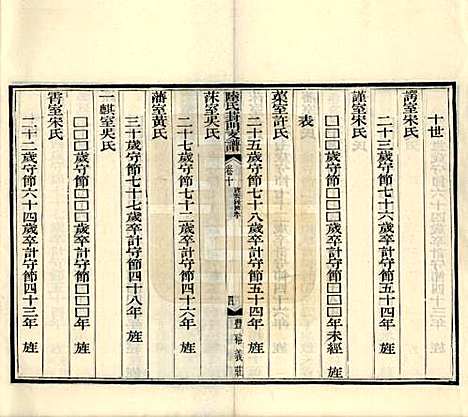 十世
謫室宋氏
二十三歲守節七十六歲卒計守節五十四年　旌
謹室宋氏
□□歲守節□□歲卒計守節□□年未經
表
葉室許氏
二十五歲守節七十八歲卒計守節五十四年　旌
陸氏葑門支譜
卷十
四
豐裕義莊
沫室吳氏
二十七歲守節七十二歲卒計守節四十六年　旌
藩室黃氏
三十歲守節七十七歲卒計守節四十八年　旌
一麒室吳氏
□□歲守節□□歲卒計守節□□年　旌
霄室宋氏
二十二歲守節六十四歲卒計守節四十三年　旌